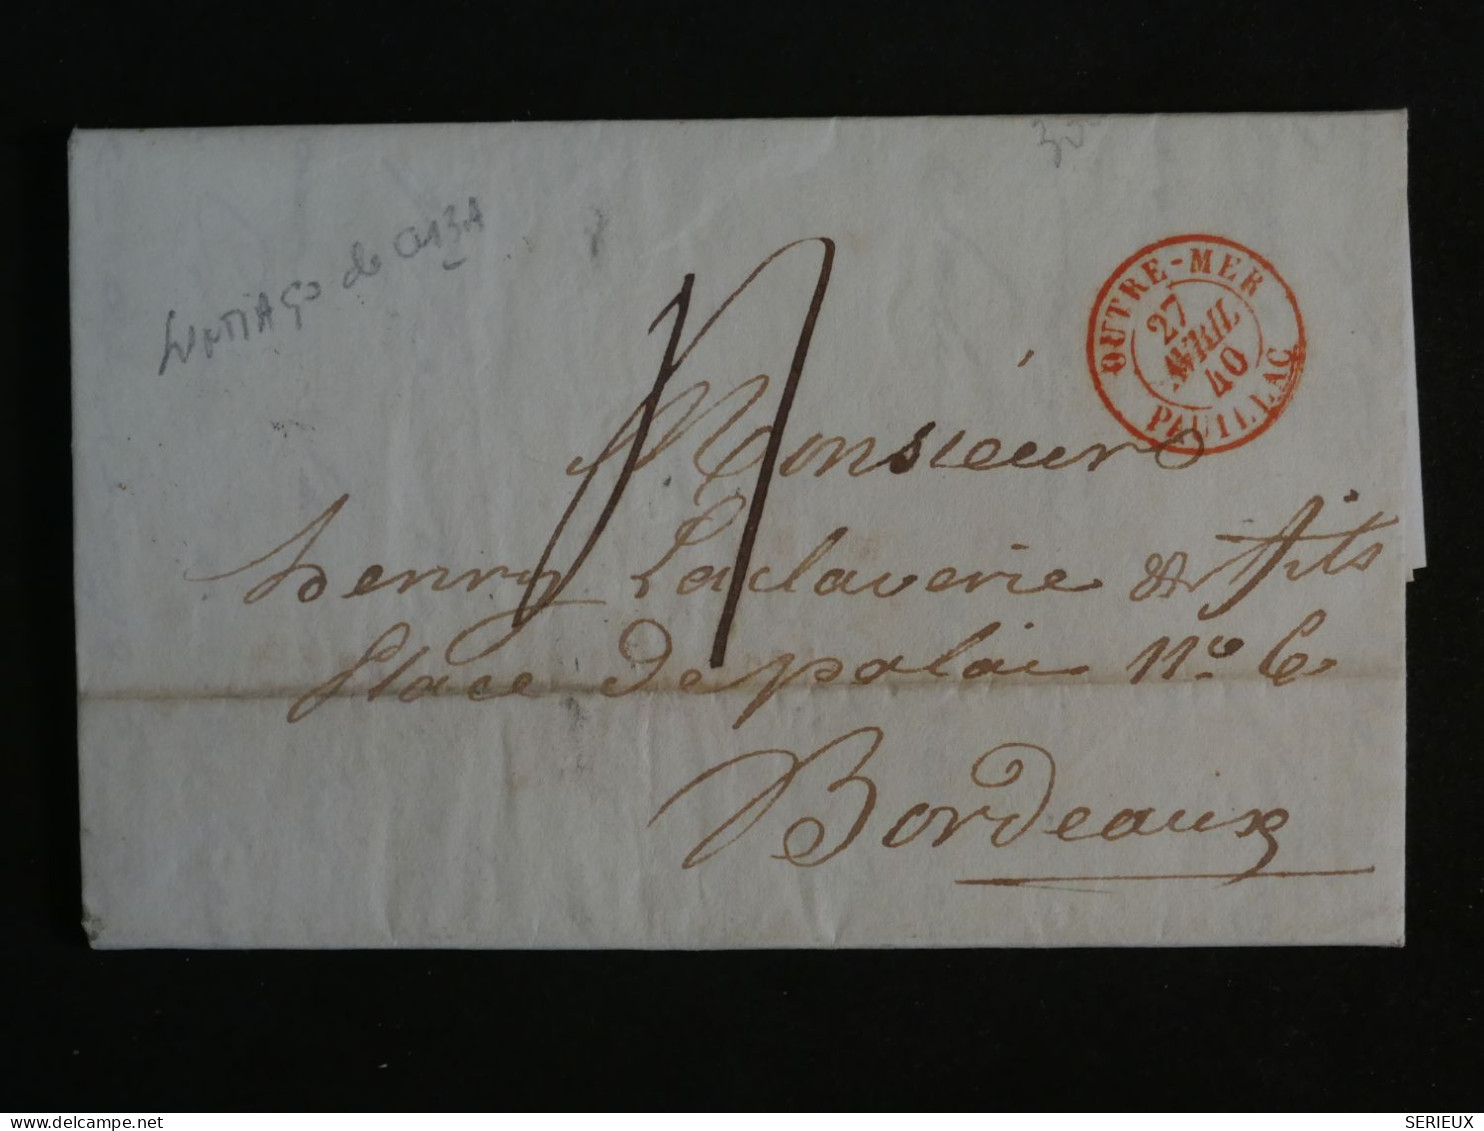 30
Santiago de CUBA
OUTRE-MER
27
AVRIL
40
PAUILLAC
Monsieur
henry Laclaverie & fils
place de palai n.o 6
Bordeaux
delcampe.net
SERIEUX